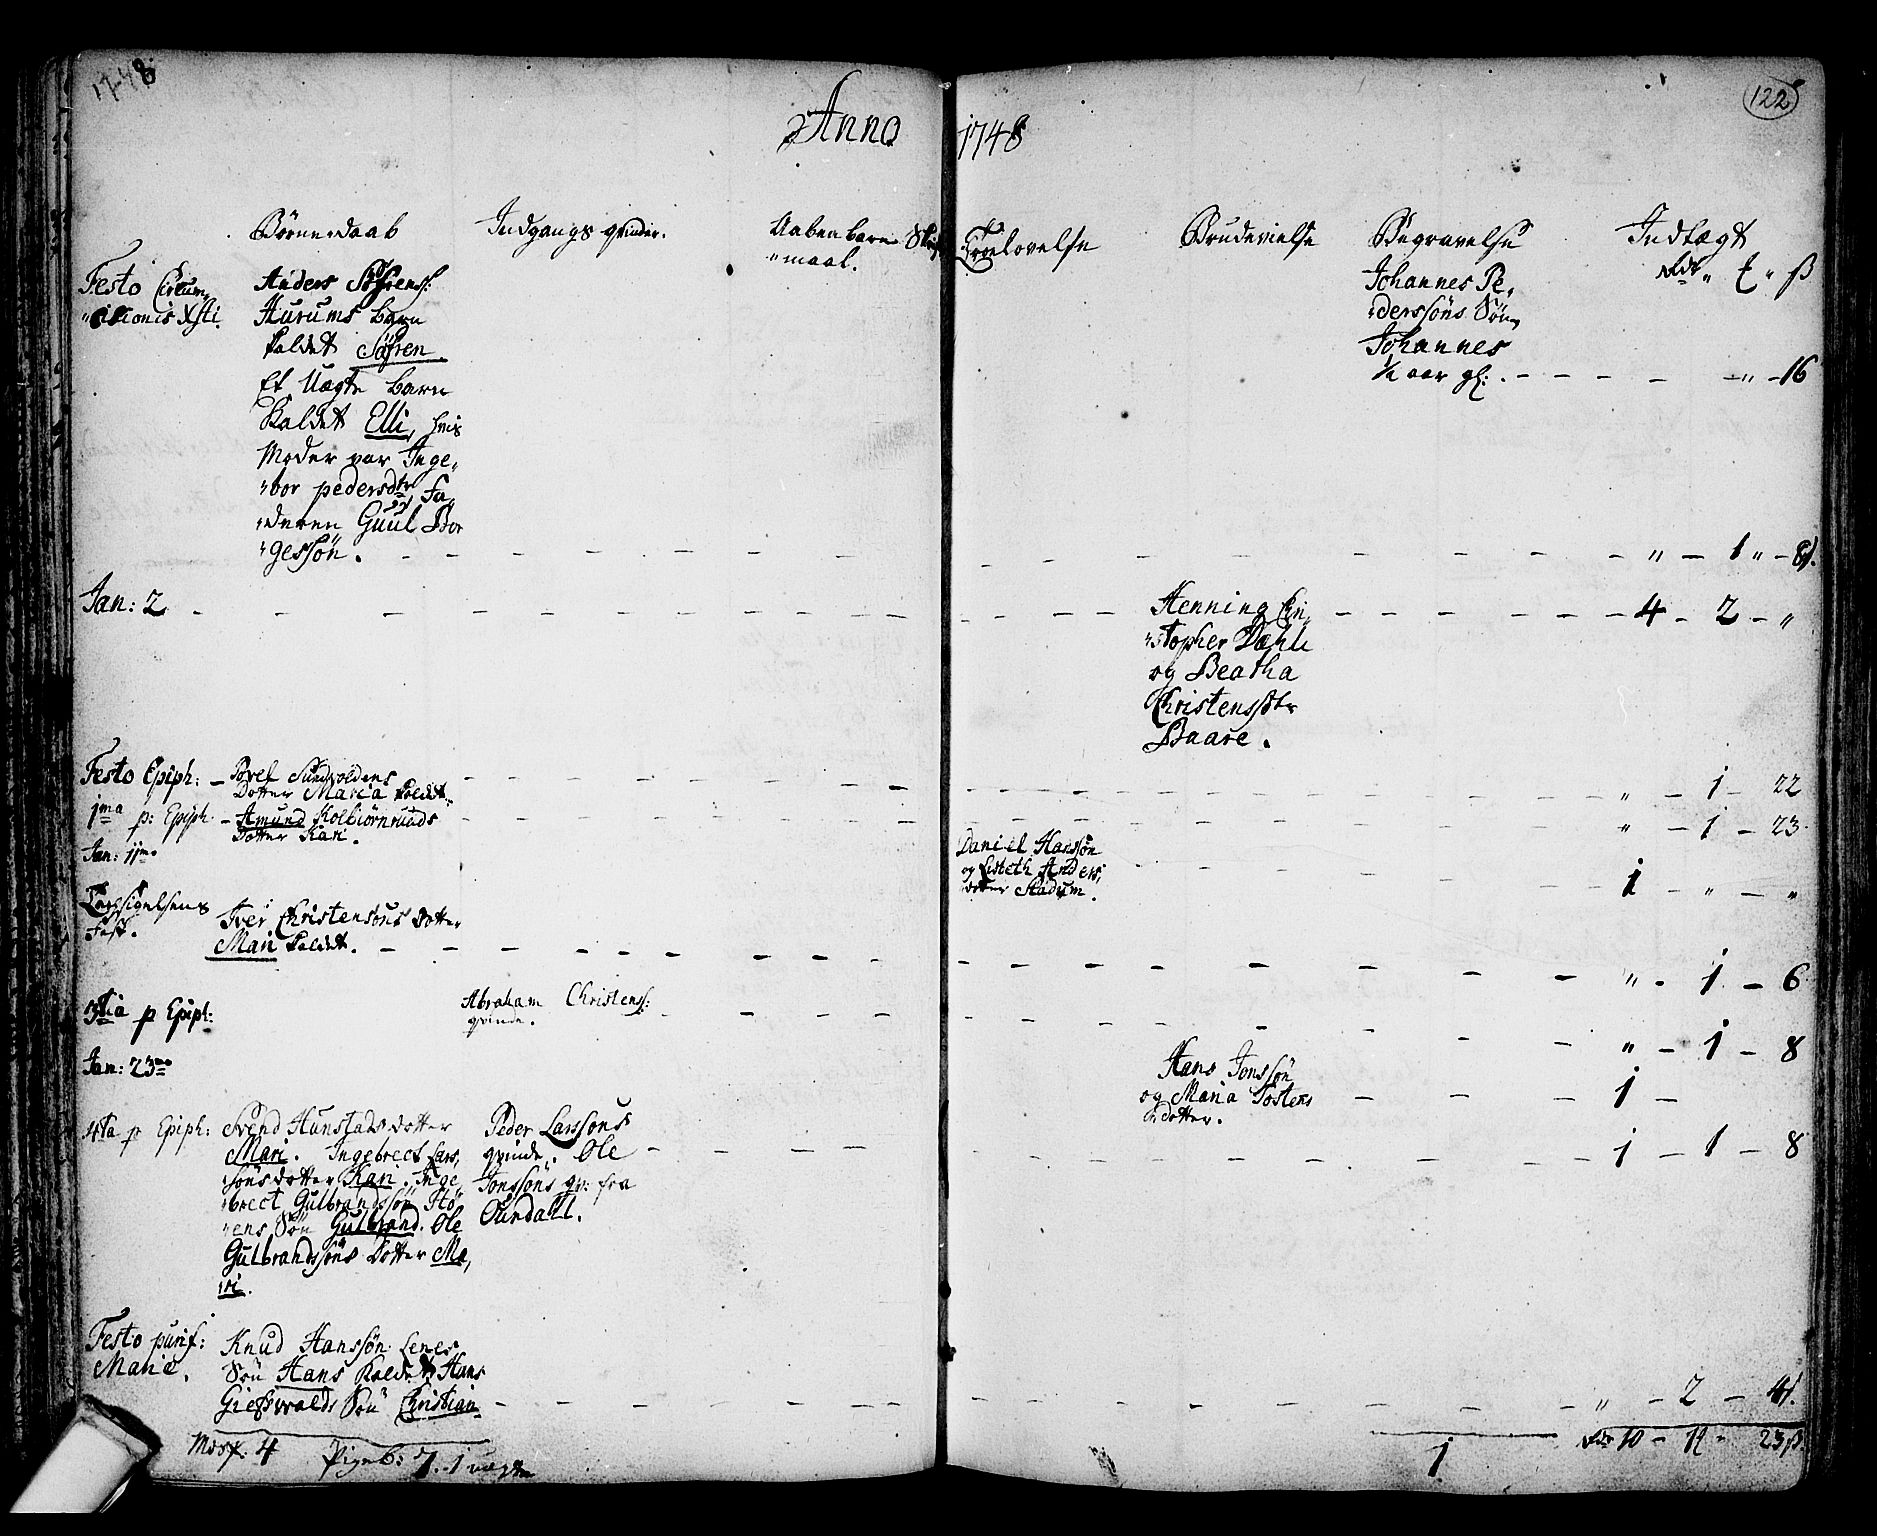 1748
122
Anno 1748
Børne-Daab
Indgangs qvinder.
Aabenbare Skrif-
"maal.
Troelovelse
Brudevielse
Begravelse
Indtægt
Rdr " ₰ " ß
Festo Circum-
"cisionis Xsti.
Anders Søfrens:
Hurums barn
kaldet Søfren.
Et Uægte barn
Kaldet Elli, hvis
Moder var Inge-
"bor pedersdtr, Fa-
"deren Guul Bor
"gessøn.
Johannes Pe-
"derssøns Søn
Johannes
½ aar gl:. - - - - " - 16
" - 1 " - 8ß.
Jan: 2
Henning Chri-
"stopher Dæhli
og Beatha
Christenssdtr
Baare.
4 - 2 - "
Festo Epiph: - Povel Sundvoldens
Dotter Maria kaldet.
" - 1 - 22
1ma p: Epiph. - Amund Kolbiørnruds
Dotter Kari.
" - 1 - 23
Jan: 11me
Daniel Hanssøn
og Lisbeth Anders-
"dotter Stadum.
1 - " - "
Fest.
Iver Christensøns Dotter
Mari kaldet.
" - 1 - 6
3tia p Epiph:
Abraham Christens:
qvinde.
" - 1 - 8
Jan: 23me
Hans Jonssøn
og Maria Tostens
dotter.
1 -
4ta p Epiph:
Svend Hunstads dotter
Mari. Ingebrect Lars-
"søns dotter Kari. Inge-
"brect Gulbrandssøn Hö-
"ens Søn Gulbrand. Ole
Gulbrandssøns Dotter Ma-
"ri.
Peder Larssøns
qvinde. Ole
Jonssøns qv: fra
1 - 1 - 8
Festo purif:
Mariæ.
Knud Hanssøn
Søn Hans Kaldet. Hans
Giesvolds Søn Christian
" - 2 - 4ß.
4
Pigeb: 7. - 1 uægte
1
Rdr 10 - 12 - 23 ß